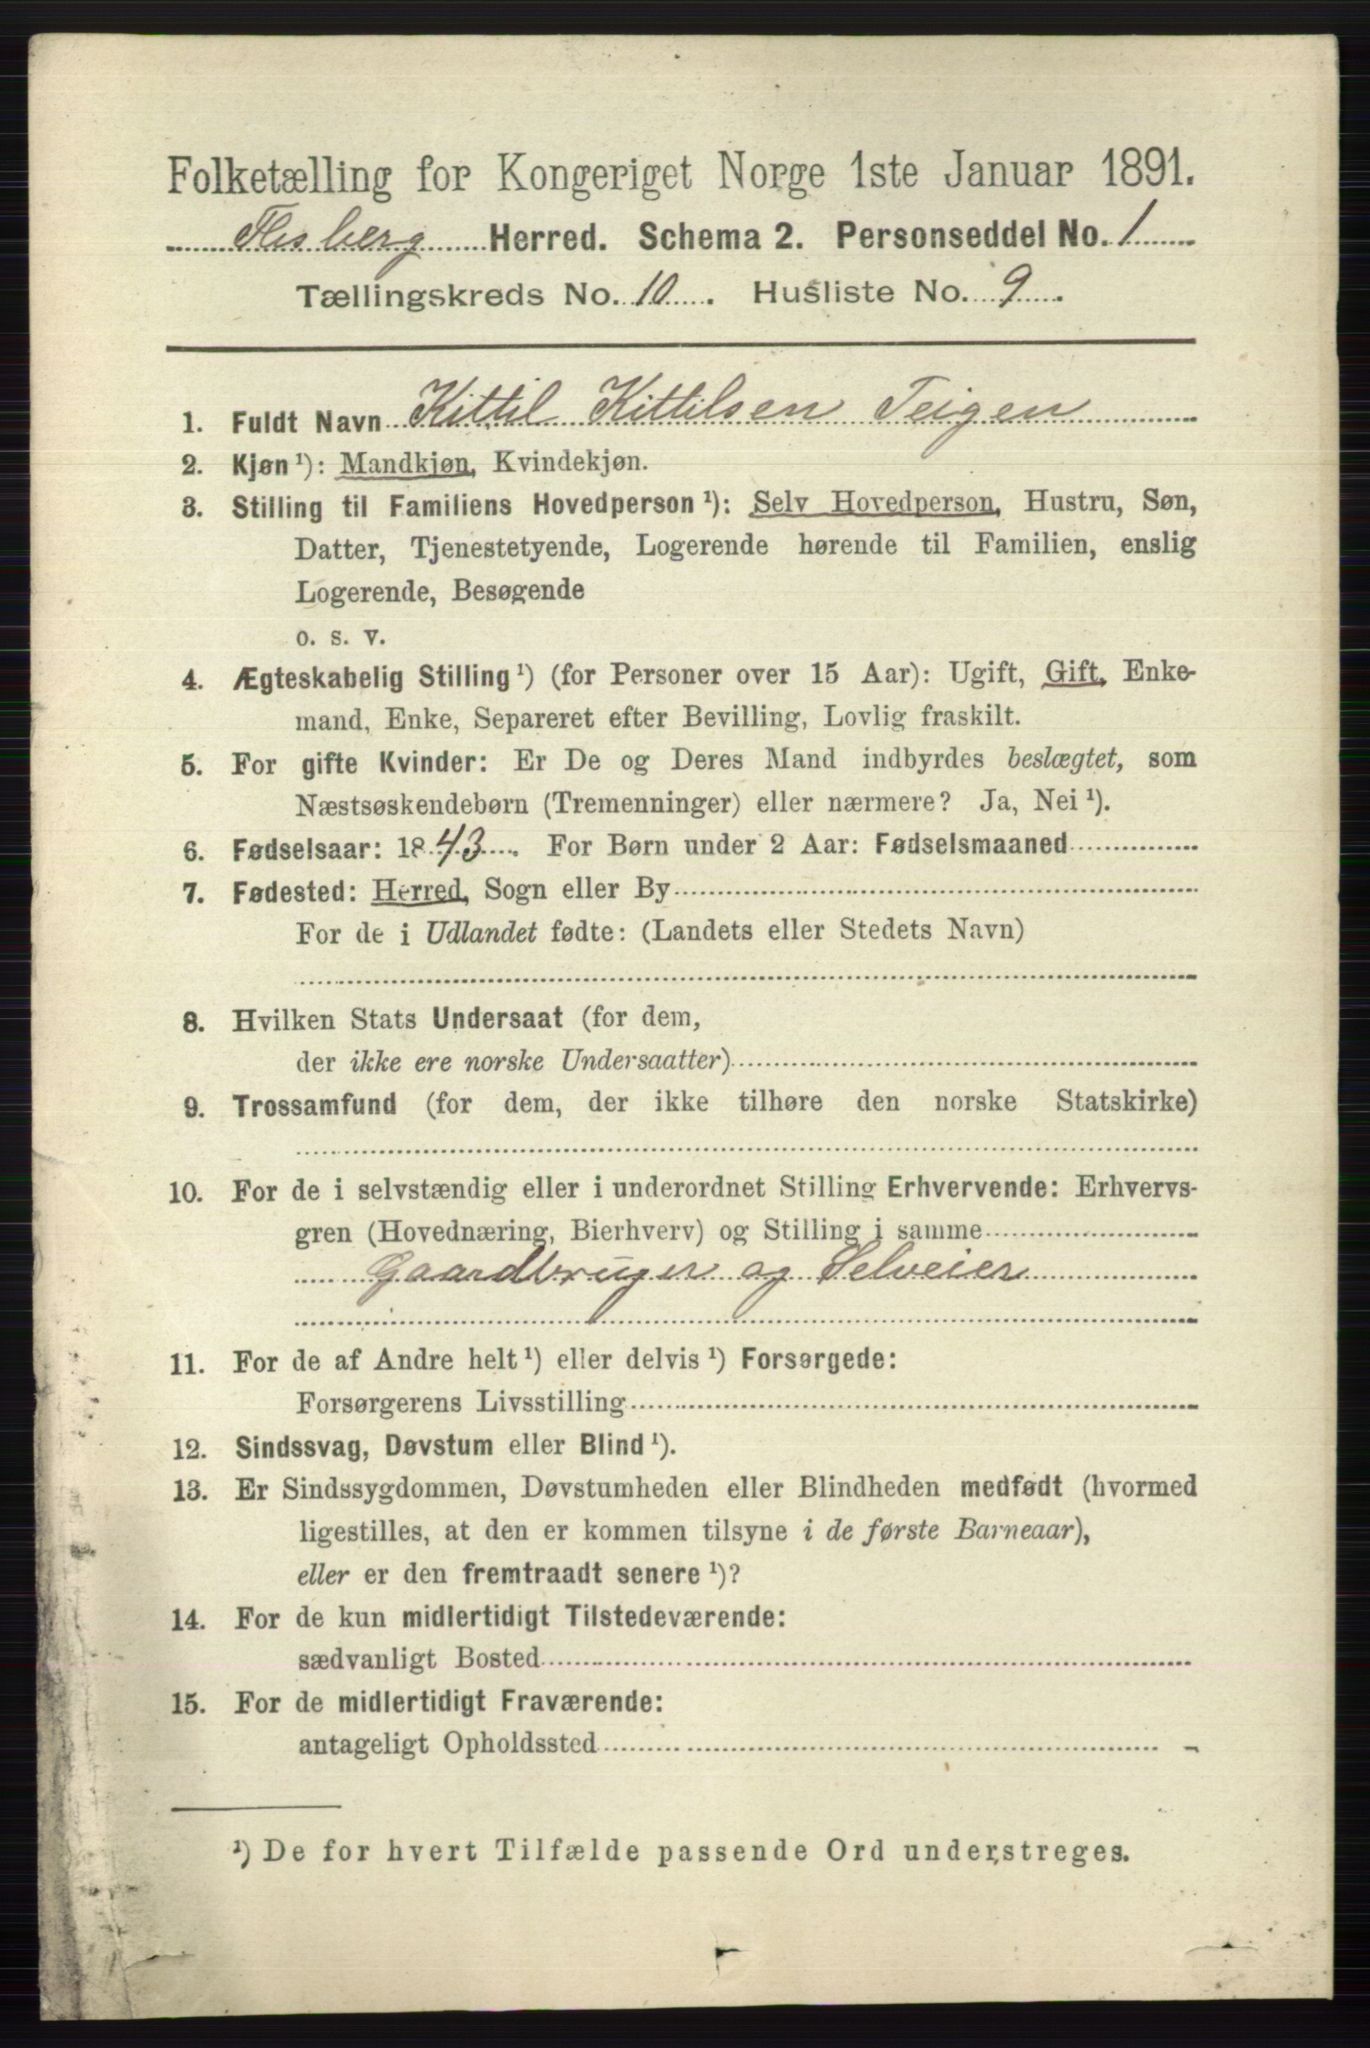 Folketælling for Kongeriget Norge 1ste Januar 1891.
Flesberg Herred. Schema 2. Personseddel No. 1
Tællingskreds No. 10. Husliste No. 9.
1. Fuldt Navn Kittil Kittilsen Teigen
2. Kjøn ¹): Mandkjøn, Kvindekjøn.
3. Stilling til Familiens Hovedperson ¹): Selv Hovedperson, Hustru, Søn,
Datter, Tjenestetyende, Logerende hørende til Familien, enslig
Logerende, Besøgende
o. s. v.
4. Ægteskabelig Stilling ¹) (for Personer over 15 Aar): Ugift, Gift, Enke-
mand, Enke, Separeret efter Bevilling, Lovlig fraskilt.
5. For gifte Kvinder: Er De og Deres Mand indbyrdes beslægtet, som
Næstsøskendebørn (Tremenninger) eller nærmere? Ja, Nei ¹).
6. Fødselsaar: 1843. For Børn under 2 Aar: Fødselsmaaned
7. Fødested: Herred, Sogn eller By
For de i Udlandet fødte: (Landets eller Stedets Navn)
8. Hvilken Stats Undersaat (for dem,
der ikke ere norske Undersaatter)
9. Trossamfund (for dem, der ikke tilhøre den norske Statskirke)
10. For de i selvstændig eller i underordnet Stilling Erhvervende: Erhvervs-
gren (Hovednæring, Bierhverv) og Stilling i samme
Gaardbruger og Selveier
11. For de af Andre helt ¹) eller delvis ¹) Forsørgede:
Forsørgerens Livsstilling
12. Sindssvag, Døvstum eller Blind ¹).
13. Er Sindssygdommen, Døvstumheden eller Blindheden medfødt (hvormed
ligestilles, at den er kommen tilsyne i de første Barneaar),
eller er den fremtraadt senere ¹)?
14. For de kun midlertidigt Tilstedeværende:
sædvanligt Bosted
15. For de midlertidigt Fraværende:
antageligt Opholdssted
¹) De for hvert Tilfælde passende Ord understreges.